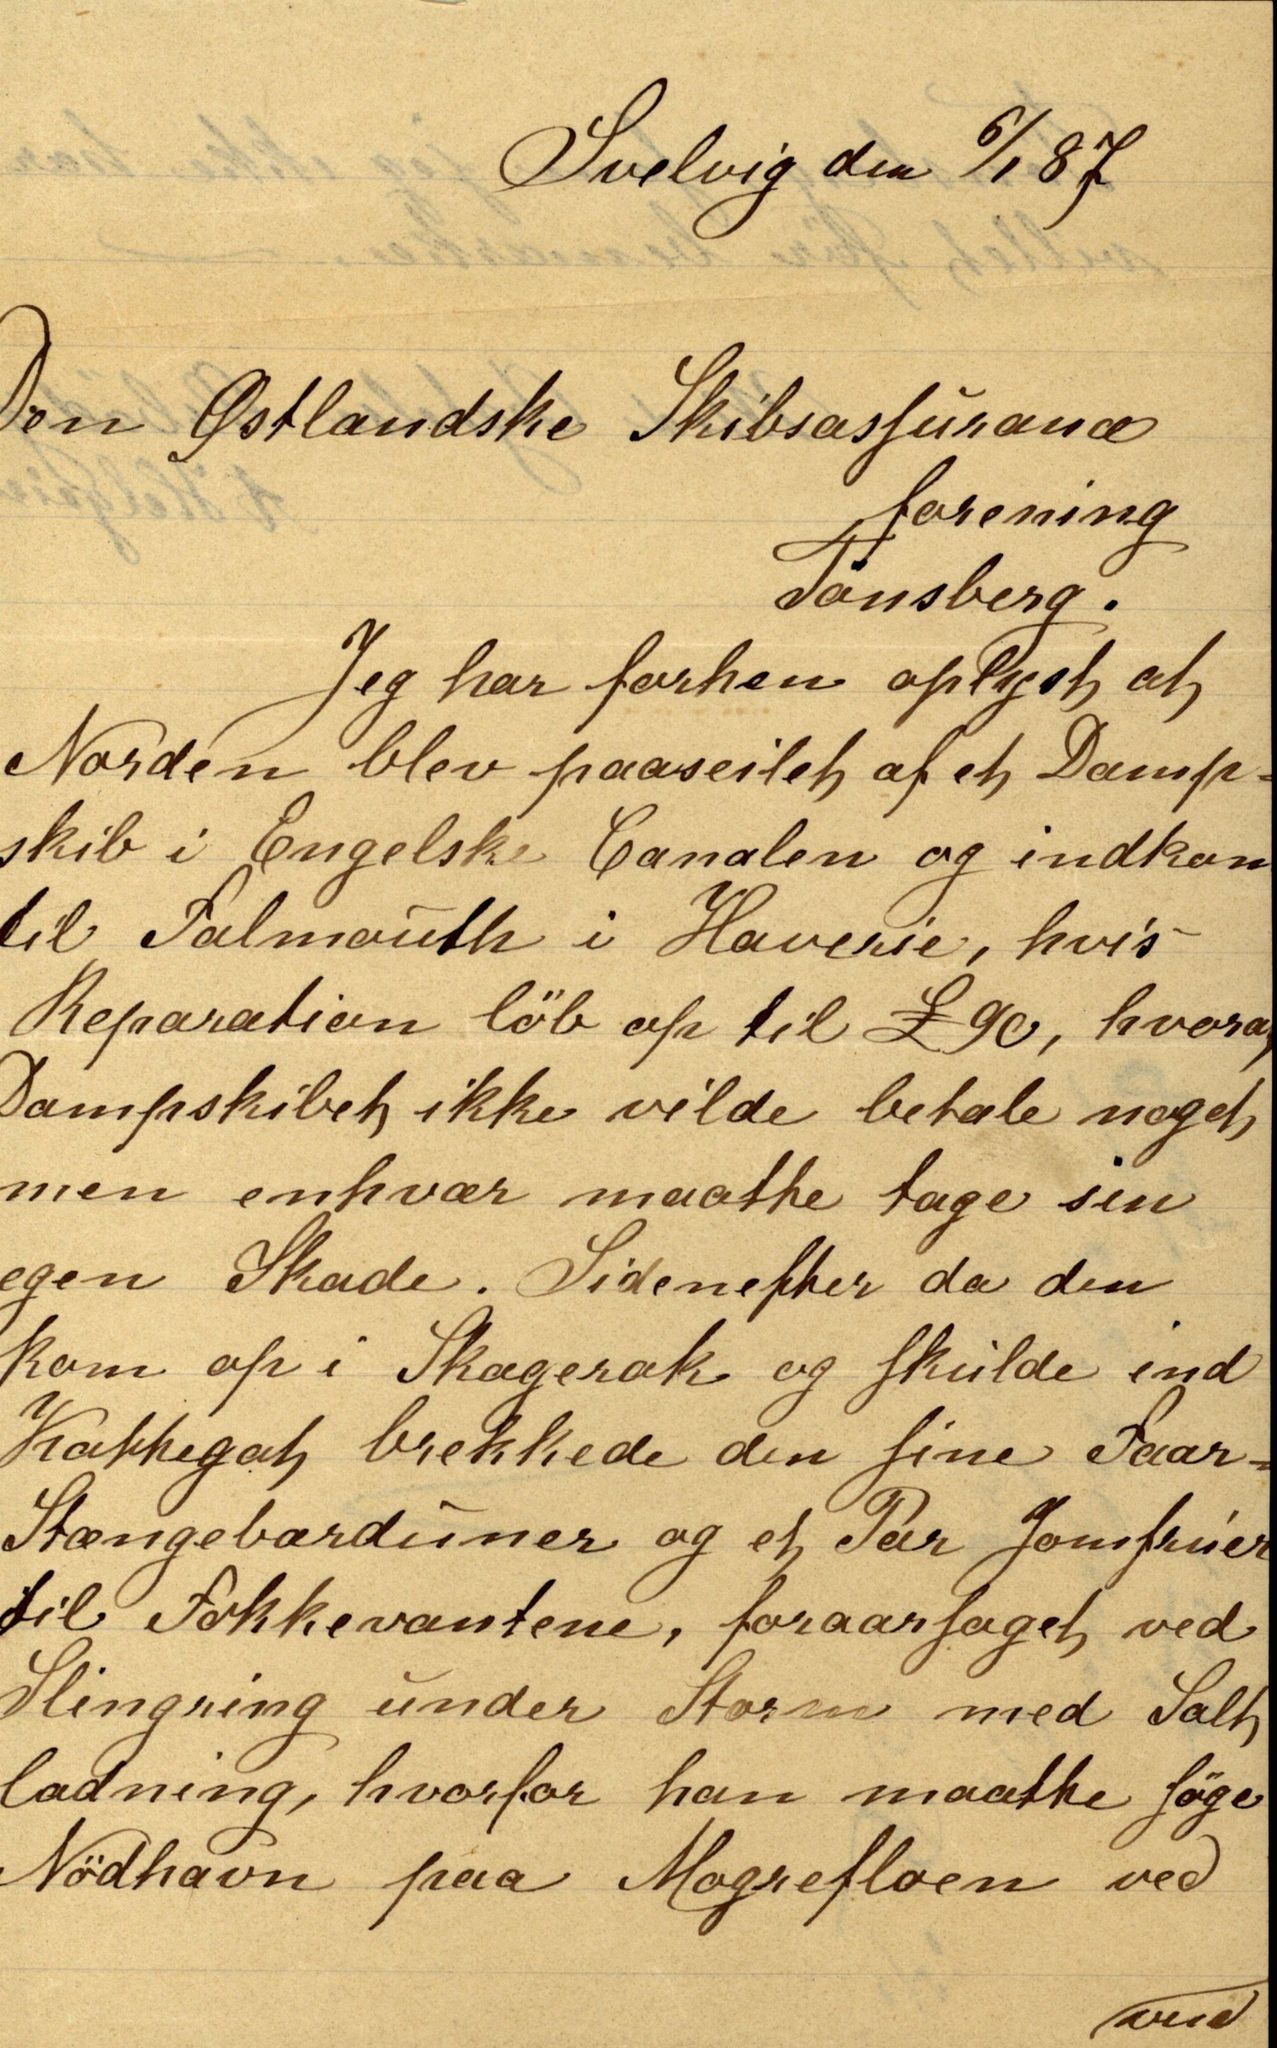 Svelvig den 6/1 87
Den Østlandske Skibsassurance
forening
Tönsberg.
Jeg har forhen oplyst at
Norden blev paaseilet af et Damp=
skib i Engelske Canalen og indkom
til Falmouth i Haverie, hvis
Reparation löb op til £ 90, hvoraf
Dampskibet ikke vilde betale noget
men enhvær maatte tage sin
egen Skade. Sidenefter da den
kom op i Skagerak og skulde ind
Kattegat brekkede den sine Faar=
Stængebarduner og et Par Jomfruer
til Fokkevantene, foraarsaget ved
Slingring under Storm med Salt
ladning, hvorfor han maatte söge
Nödhavn paa Mogrefloen ved
vend